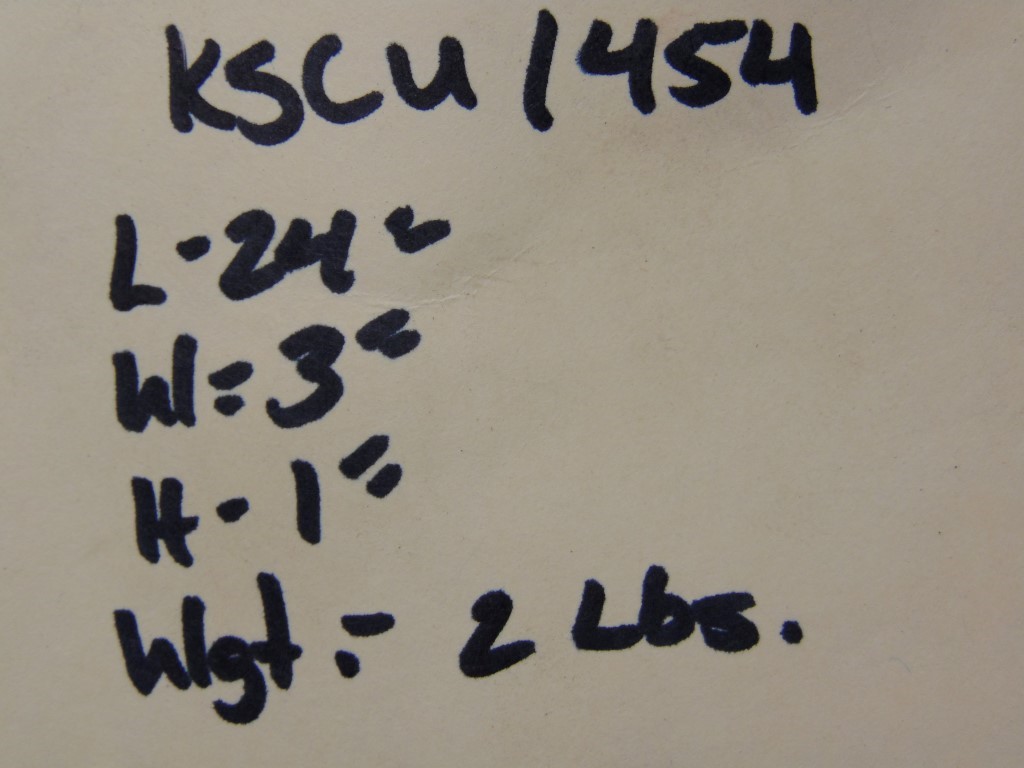 KSCU 1454
L - 24"
W = 3"
H - 1"
Wgt. - 2 Lbs.